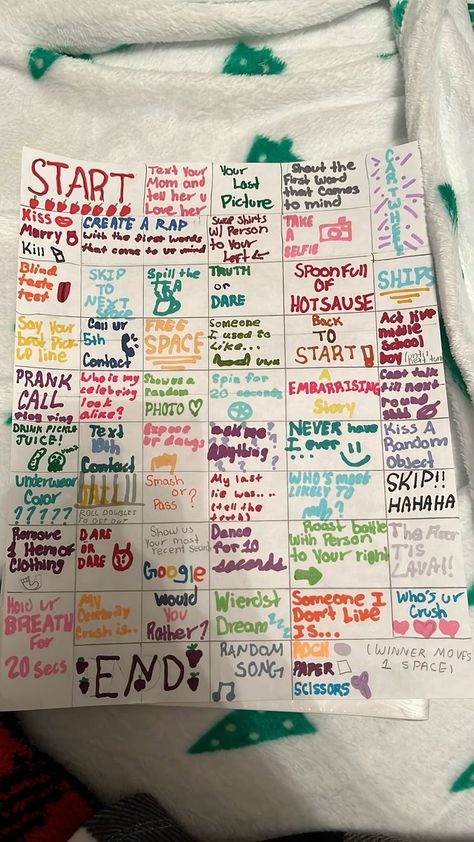 START
Text Your
Mom and
tell her u
Love her
Your
Last
Picture
Shout the
First word
that comes
to mind
CARTWHEEL
Kiss
Marry
Kill
CREATE A RAP
with the first words
that come to ur mind
Swap Shirts
W/ Person
to Your
Left
TAKE
A
SELFIE
Blind
taste
test
SKIP
TO
NEXT
SPACE
Spill the
TEA
TRUTH
or
DARE
SPOONFULL
OF
HOTSAUSE
SHIPS
Say Your
best Pick-
up line
Call ur
5th
Contact
FREE
SPACE
Someone
I used to
like...
BACK
TO
START
Act like
middle
School
boy
PRANK
CALL
ring ring
Who is my
celebrity
look
alike?
Show us a
random
PHOTO
Spin for
20 seconds
A
EMBARRISING
Story
Cant talk
till next
round
shhh
DRINK PICKLE
JUICE!
Text
10th
Contact
Expose
or dawgs
ask me
Anything
? ?
NEVER have
I ever
Kiss A
Random
Object
Underwear
Color
?????
ROLL DOUBLES
TO GET OUT
Smash
or ?
Pass
My last
lie was....
(tell the
truth)
WHO'S MOST
LIKELY TO
SKIP!!
HAHAHA
Remove
1 Item of
Clothing
DARE
or
DARE
Show us
Your most
recent Search
Google
Dance
for 10
seconds
Roast battle
With Person
to Your right
The Floor
IS
LAVA!!
Hold ur
BREATH
For
20 secs
My
Celebrity
Crush is..
Would
You
Rather?
Wierdst
Dream
zzz
Someone I
Don't Live
IS...
Who's ur
Crush
END!
RANDOM
SONG
ROCK
PAPER
SCISSORS
(WINNER MOVES
1 SPACE)